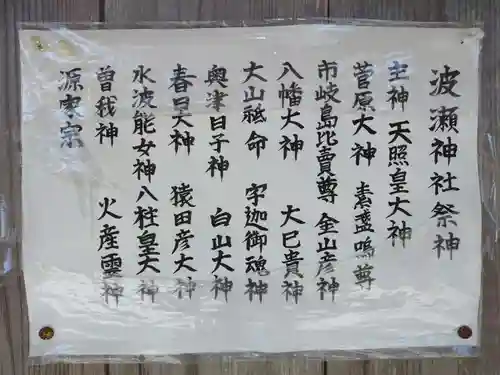 波瀬神社祭神
主神 天照皇大神
菅原大神 素盞嗚尊
市岐島比賣尊 金山彦神
八幡大神 大己貴神
大山祗命 宇迦御魂神
奥津日子神 白山大神
春日大神 猿田彦大神
水波能女神 八柱皇大神
曽我神 火産霊神
源家宗